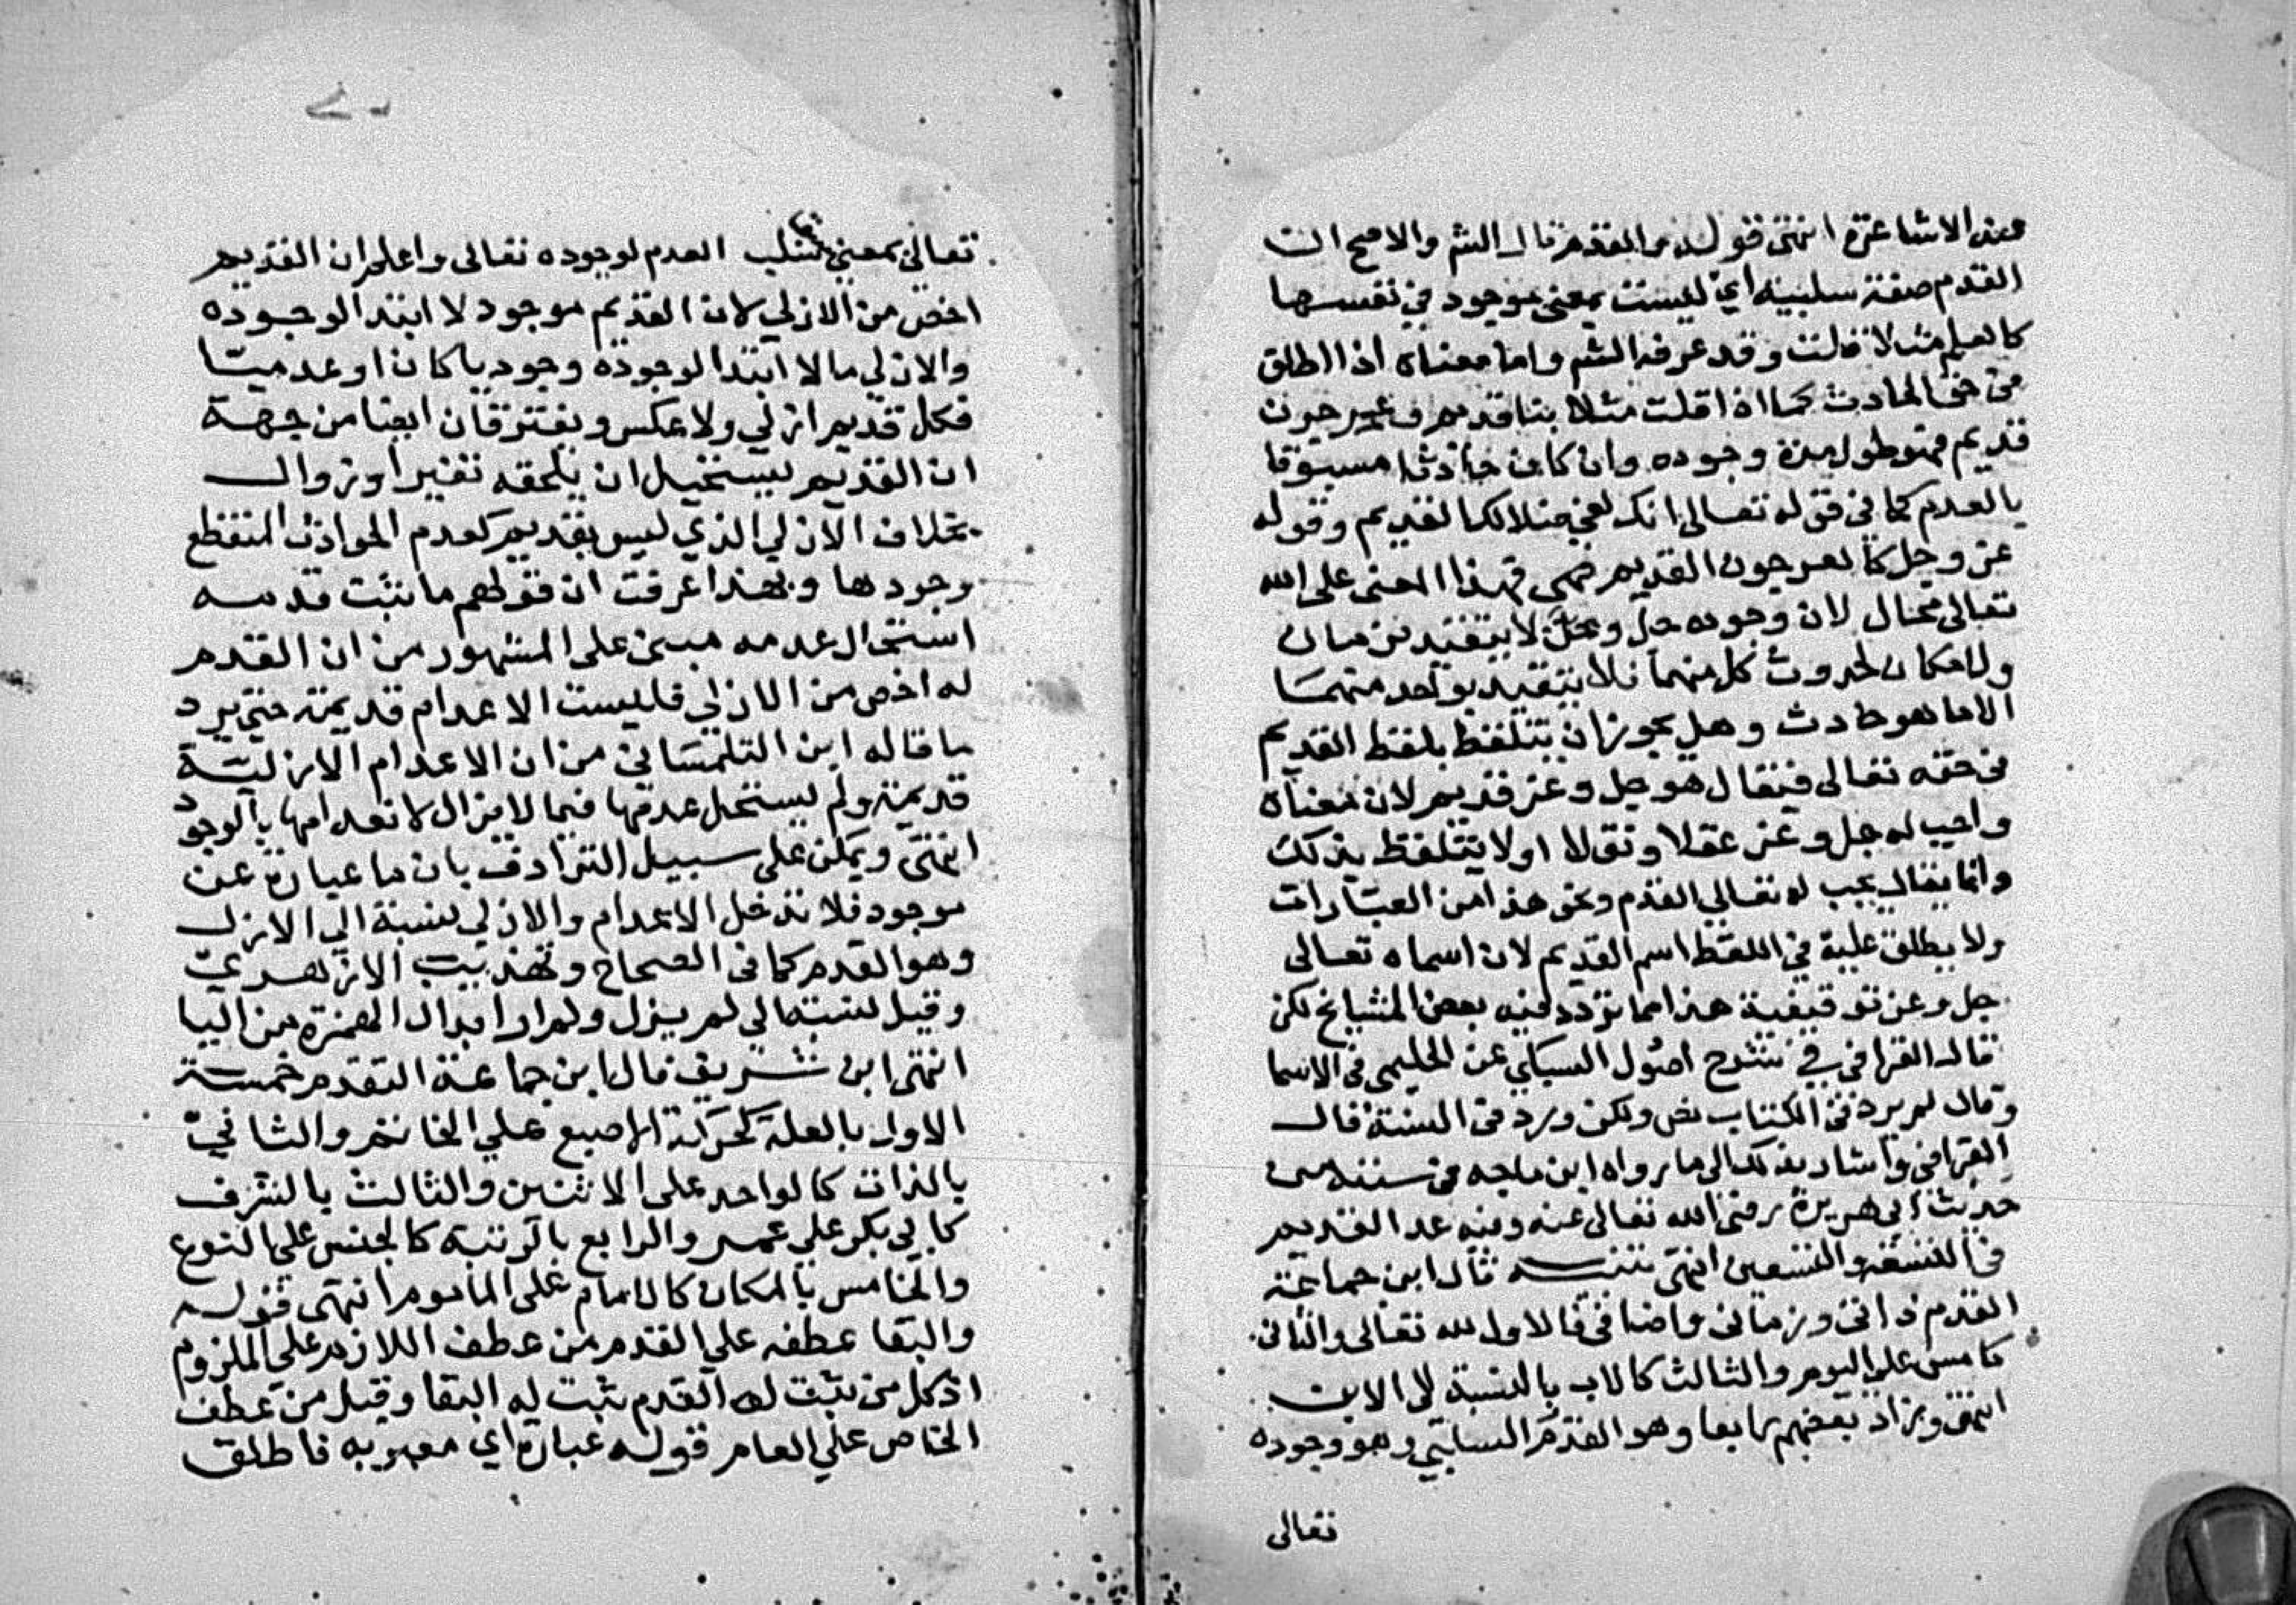 عند الاشاعرة انتهى قوله والقدم قال الش والاصح ان
القدم صفة سلبية اي ليست بمعنى موجود في نفسها
كالعلم مثلا قالت وقد عرفه الشم واما معناه اذا اطلق
في حق الحادث كما اذا قلت مثلا بنا قديم وعرجون
قديم فهو طول مدة وجوده وان كان حادثا مسبوقا
بالعدم كما في قوله تعالى انك لفي ضلالك القديم وقوله
عز وجل كالعرجون القديم فهذا المعنى على الله
تعالى محال لان وجوده جل وعز لا يتقيد بزمان
ولا مكان لحدوث كل منهما فلا يتقيد بواحد منهما
الا ما هو حادث وهل يجوز ان يتلفظ بلفظ القديم
في حقه تعالى فيقال هو جل وعز قديم لان معناه
واجب له جل وعز عقلا ونقلا او لا يتلفظ بذلك
وانما يقال يجب له تعالى القدم ونحو هذا من العبارات
ولا يطلق عليه في اللفظ اسم القديم لان اسماه تعالى
جل وعز توقيفية هذا مما تردد فيه بعض المشيايخ لكن
قال القرافي في شرح اصول السبكي عن الحليمي في الاسما
وقال لم يرد في الكتاب نص ولكن ورد في السنة قال
القرافي واشار بذلك الى ما رواه ابن ماجه في سننه من
حديث ابي هريرة رضي الله تعالى عنه وفيه عد القديم
في التسعة والتسعين انتهى تنبيه قال ابن جماعة
القدم ذاتي وزماني واضافي فالاول لله تعالى والثاني
كامس على اليوم والثالث كالاب بالنسبة الى الابن
انتهى وزاد بعضهم رابعا وهو القدم السلبي وهو وجوده
تعالى
تعالى بمعنى سلب العدم لوجوده تعالى واعلم ان القديم
اخص من الازلي لان القديم موجود لا ابتدا لوجوده
والازلي ما لا ابتدا لوجوده وجوديا كان او عدميا
فكل قديم ازلي ولا عكس ويفترقان ايضا من جهة
ان القديم يستحيل ان يلحقه تغير او زوال
بخلاف الازلي الذي ليس بقديم كعدم الحوادث المنقطع
بوجودها وبهذا عرفت ان قولهم ما ثبت قدمه
استحال عدمه مبني على المشهور من ان القدم
له اخص من الازلي فليست الاعدام قديمة حتى يرد
ما قاله ابن التلمساني من ان الاعدام الازلية
قديمة ولم يستحل عدمها فيما لا يزال لانعدامها بالوجود
انتهى ويمكن على سبيل الترادف بان ما عبارة عن
موجود فلا تدخل الاعدام والازلي نسبة الى الازل
وهو القدم كما في الصحاح وتهذيب الازهري
وقيل نسبة الى لم يزل ولم ار ابدال الهمزة من اليا
انتهى ابن شريف قال ابن جماعة التقدم خمسة
الاول بالعلة كحركة الاصبع على الخاتم والثاني
بالذات كالواحد على الاثنين والثالث بالشرف
كابي بكر على عمر والرابع بالرتبة كالجنس على النوع
والخامس بالمكان كالامام على الماموم انتهى قوله
والبقا عطفه على القدم من عطف اللازم على الملزوم
اذ كل من ثبت له القدم ثبت له البقا وقيل من عطف
الخاص على العام قوله عبارة اي معبر به فاطلق